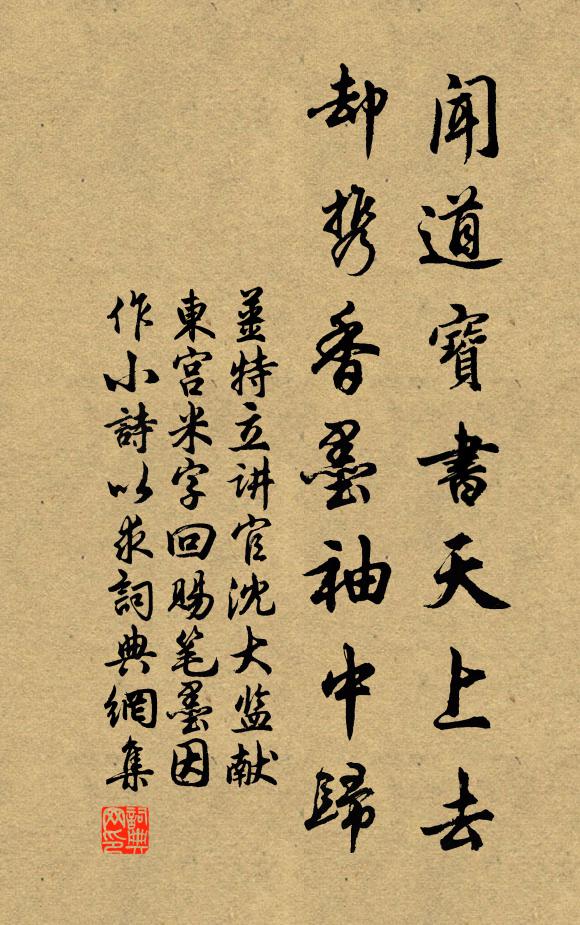 聞道寶書天上去
却携香墨袖中歸
姜特立讲官沈大监献
東宮米字回賜笔墨因
作小詩以求詞典網集
詞典
网印